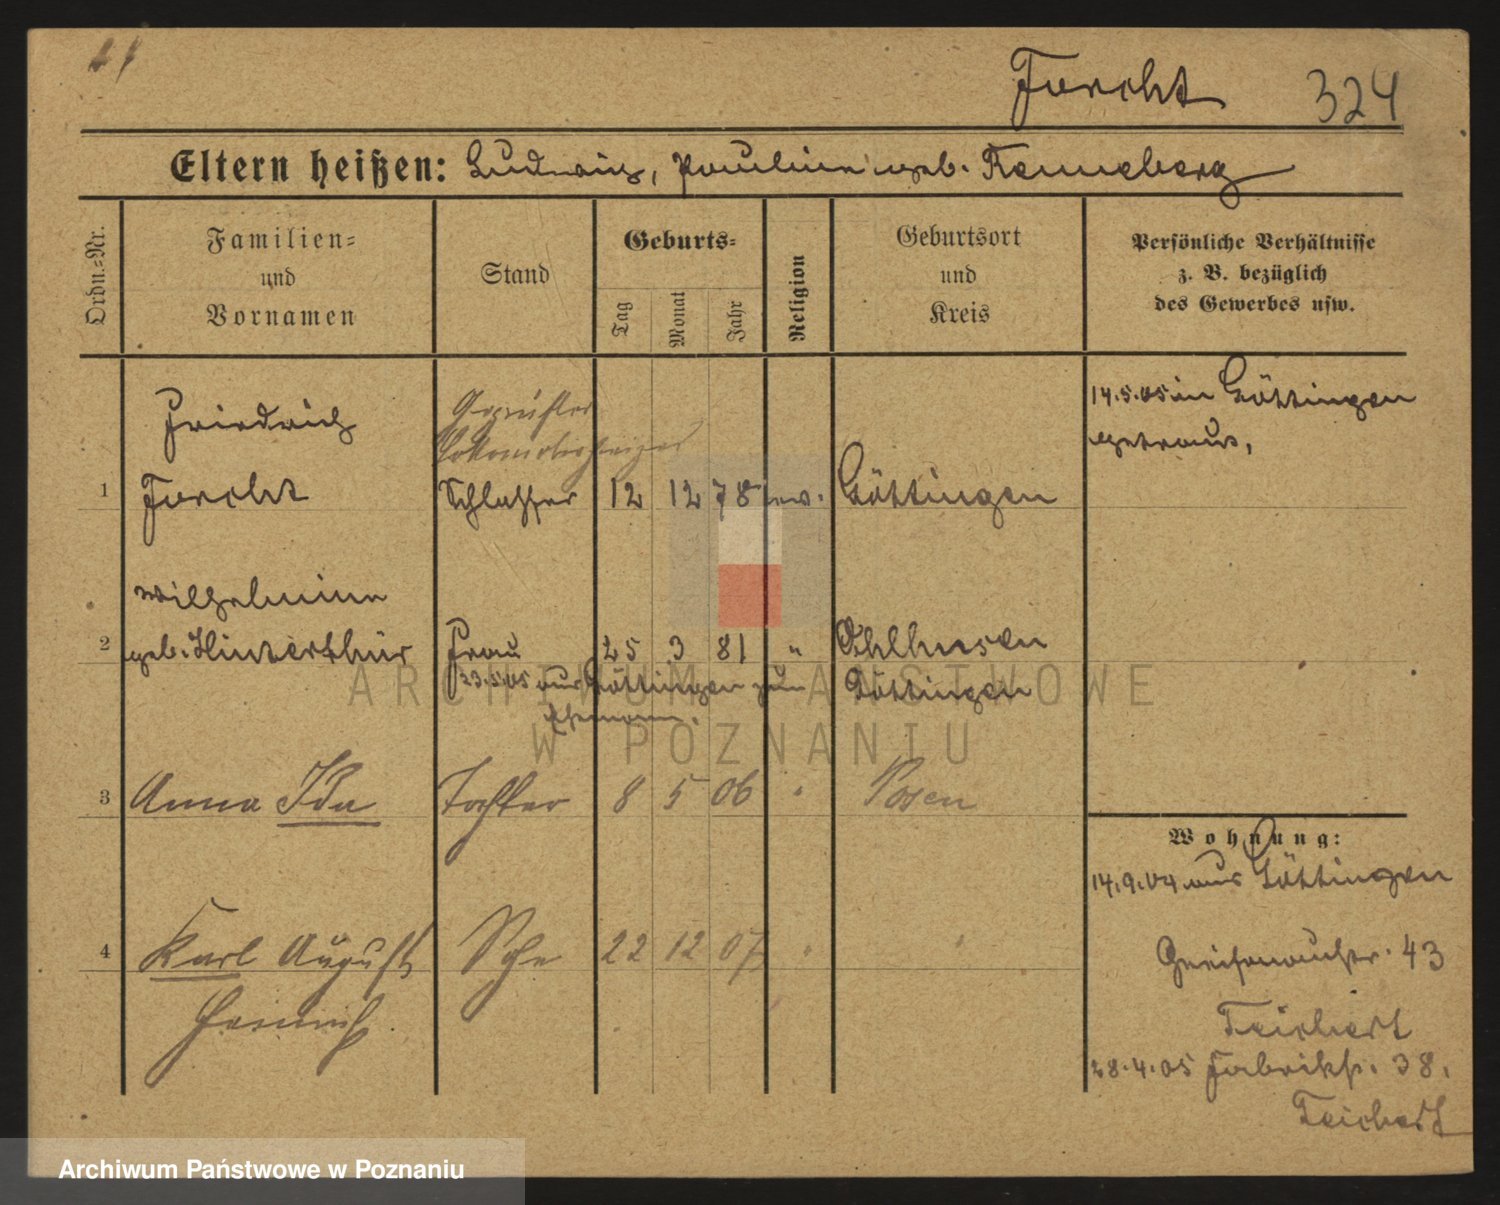 Forcht 324
Eltern heißen: Ludwig, Pauline geb. Renneberg
Ordn.-Nr.
Familien-
und
Vornamen
Stand
Geburts-
Tag
Monat
Jahr
Religion
Geburtsort
und
Kreis
Persönliche Verhältnisse
z. B. bezüglich
des Gewerbes usw.
Geprüfter
Lokomotivheizer
1 Friedrich
Forcht
Schlosser 12 12 78 ev. Göttingen
14.5.05 in Göttingen
getraut,
2 Wilhelmine
geb. Hinterthür
Frau 25 3 81 "
23.5.05 aus Göttingen zum
Ehemann.
Göttingen
3 Anna Ida Tochter 8 5 06 " Posen
4 Karl August
Heinrich
Sohn 22 12 07 " "
Wohnung:
14.9.04 aus Göttingen
43
Teichert
28.4.05 Fabrikstr. 38.
Teichert
ARCHIWUM PAŃSTWOWE
W POZNANIU
Archiwum Państwowe w Poznaniu